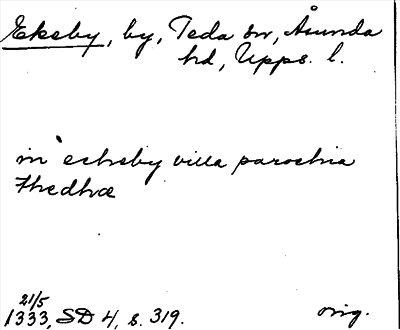 Ekeby, by, Teda sn, Åsunda
hd, Upps. l.
in echeby villa parochia
Thedhæ
21/5
1333, SD 4, s. 319. orig.